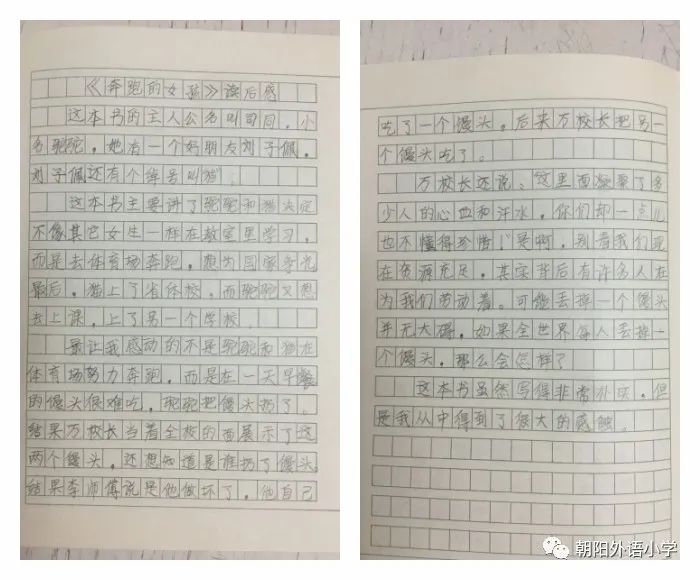 《奔跑的女孩》读后感
这本书的主人公名叫司同，小
名驼驼。她有一个好朋友刘子佩。
刘子佩还有个绰号叫"猫"。
这本书主要讲了驼驼和猫决定
不像其它女生一样在教室里学习，
而是去体育场奔跑，想为国家争光
最后，猫上了省体校，而驼驼又想
去上课，上了另一个学校。
最让我感动的不是驼驼和猫在
体育场努力奔跑，而是在一天早餐
的馒头很难吃，驼驼把馒头扔了。
结果万校长当着全校的面展示了这
两个馒头，还想知道是谁扔了馒头，
结果李师傅说是他做坏了，他自己
吃了一个馒头，后来万校长把另一
个馒头吃了。
万校长还说：这里面凝聚了多
少人的心血和汗水，你们却一点儿
也不懂得珍惜！是啊，别看我们现
在资源充足，其实背后有许多人在
为我们劳动着。可能丢掉一个馒头
并无大碍，如果全世界每人丢掉一
个馒头，那么会怎样？
这本书虽然写得非常朴实，但
是我从中得到了很大的感触。
朝阳外语小学